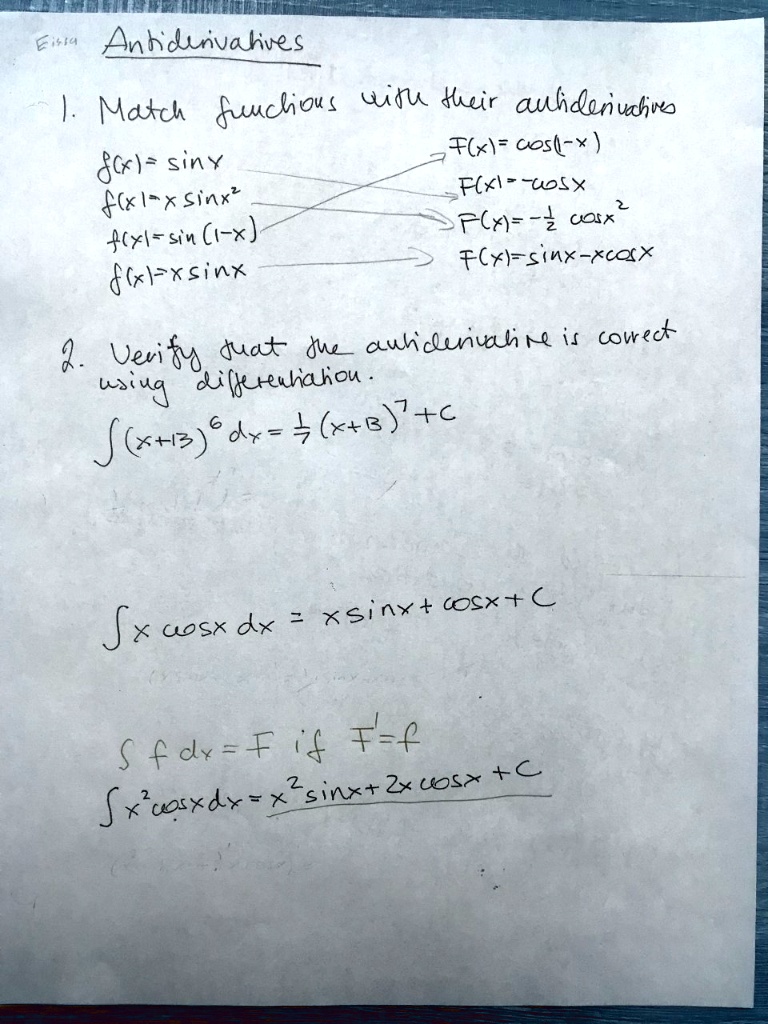 Eissa
Antiderivatives
1. Match functions with their antiderivatives
f(x)= sinx
f(x)=x sinx²
f(x)=sin(1-x)
f(x)=xsinx
F(x)= cos(1-x)
F(x)=-cosx
F(x)=-½ cosx²
F(x)=sinx-xcosx
2. Verify that the antiderivative is correct
using differentiation.
∫(x+13)⁶dx=1/7(x+13)⁷+C
∫x cosx dx = xsinx+cosx+C
∫f dx=F if F'=f
∫x²cosxdx=x²sinx+2xcosx+C